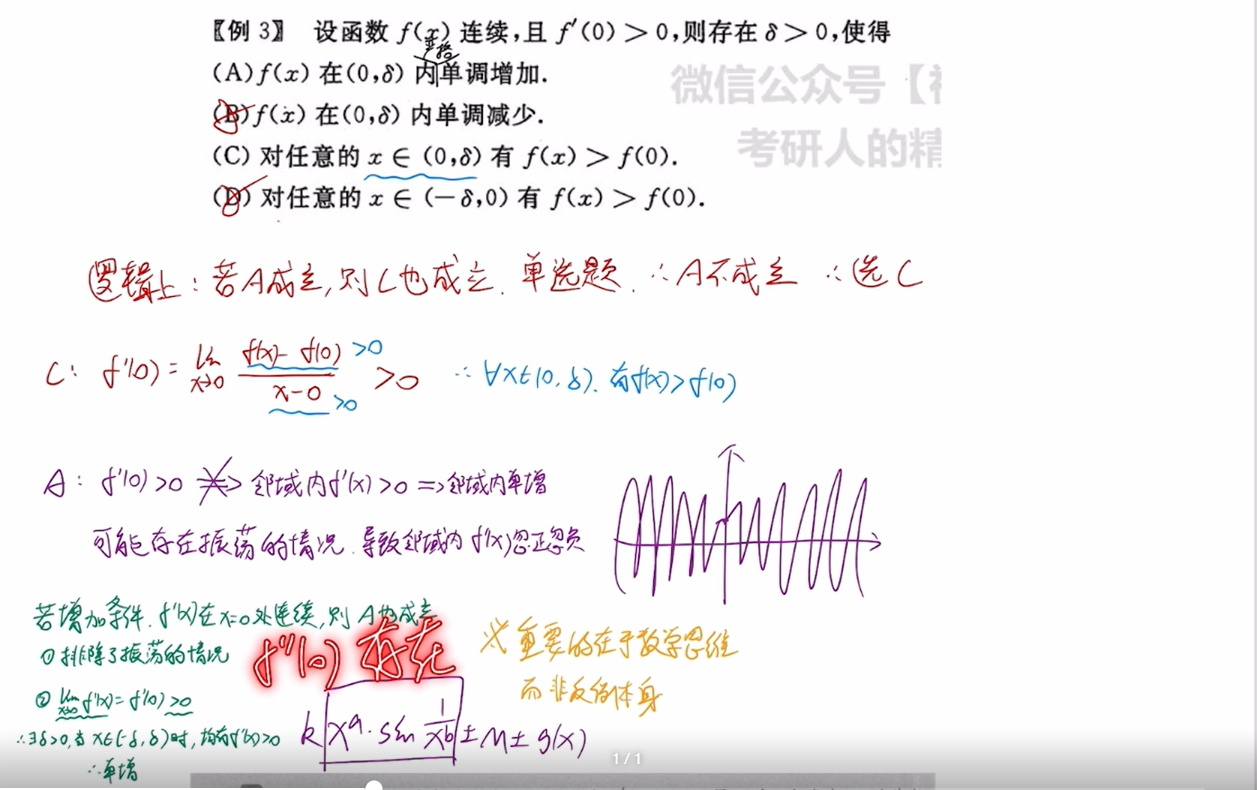 〖例 3〗 设函数 f(x) 连续,且 f′(0) > 0,则存在 δ > 0,使得
严格
(A) f(x) 在(0,δ) 内单调增加.
(B) f(x) 在(0,δ) 内单调减少.
(C) 对任意的 x ∈ (0,δ) 有 f(x) > f(0).
(D) 对任意的 x ∈ (−δ,0) 有 f(x) > f(0).
微信公众号【
考研人的精
逻辑上: 若A成立, 则C也成立. 单选题. ∴A不成立 ∴选C
C: f'(0) = lim x→0 f(x)-f(0) / x-0 > 0 ∴ ∀x∈(0,δ), 有f(x)>f(0)
>0
>0
A: f'(0)>0 ⇏ 邻域内f'(x)>0 ⇒邻域内单增
可能存在振荡的情况. 导致邻域内 f'(x)忽正忽负
若增加条件. f'(x)在x=0处连续, 则 A也成立
① 排除了振荡的情况
f''(0) 存在
※ 重要的在于数学思维
而非反例本身
② lim x→0 f'(x) = f'(0) >0
∴∃δ>0, 当 x∈(-δ,δ)时, 均有f'(x)>0
∴单增
k x^a · sin 1/x^b ± M ± g(x)
1 / 1